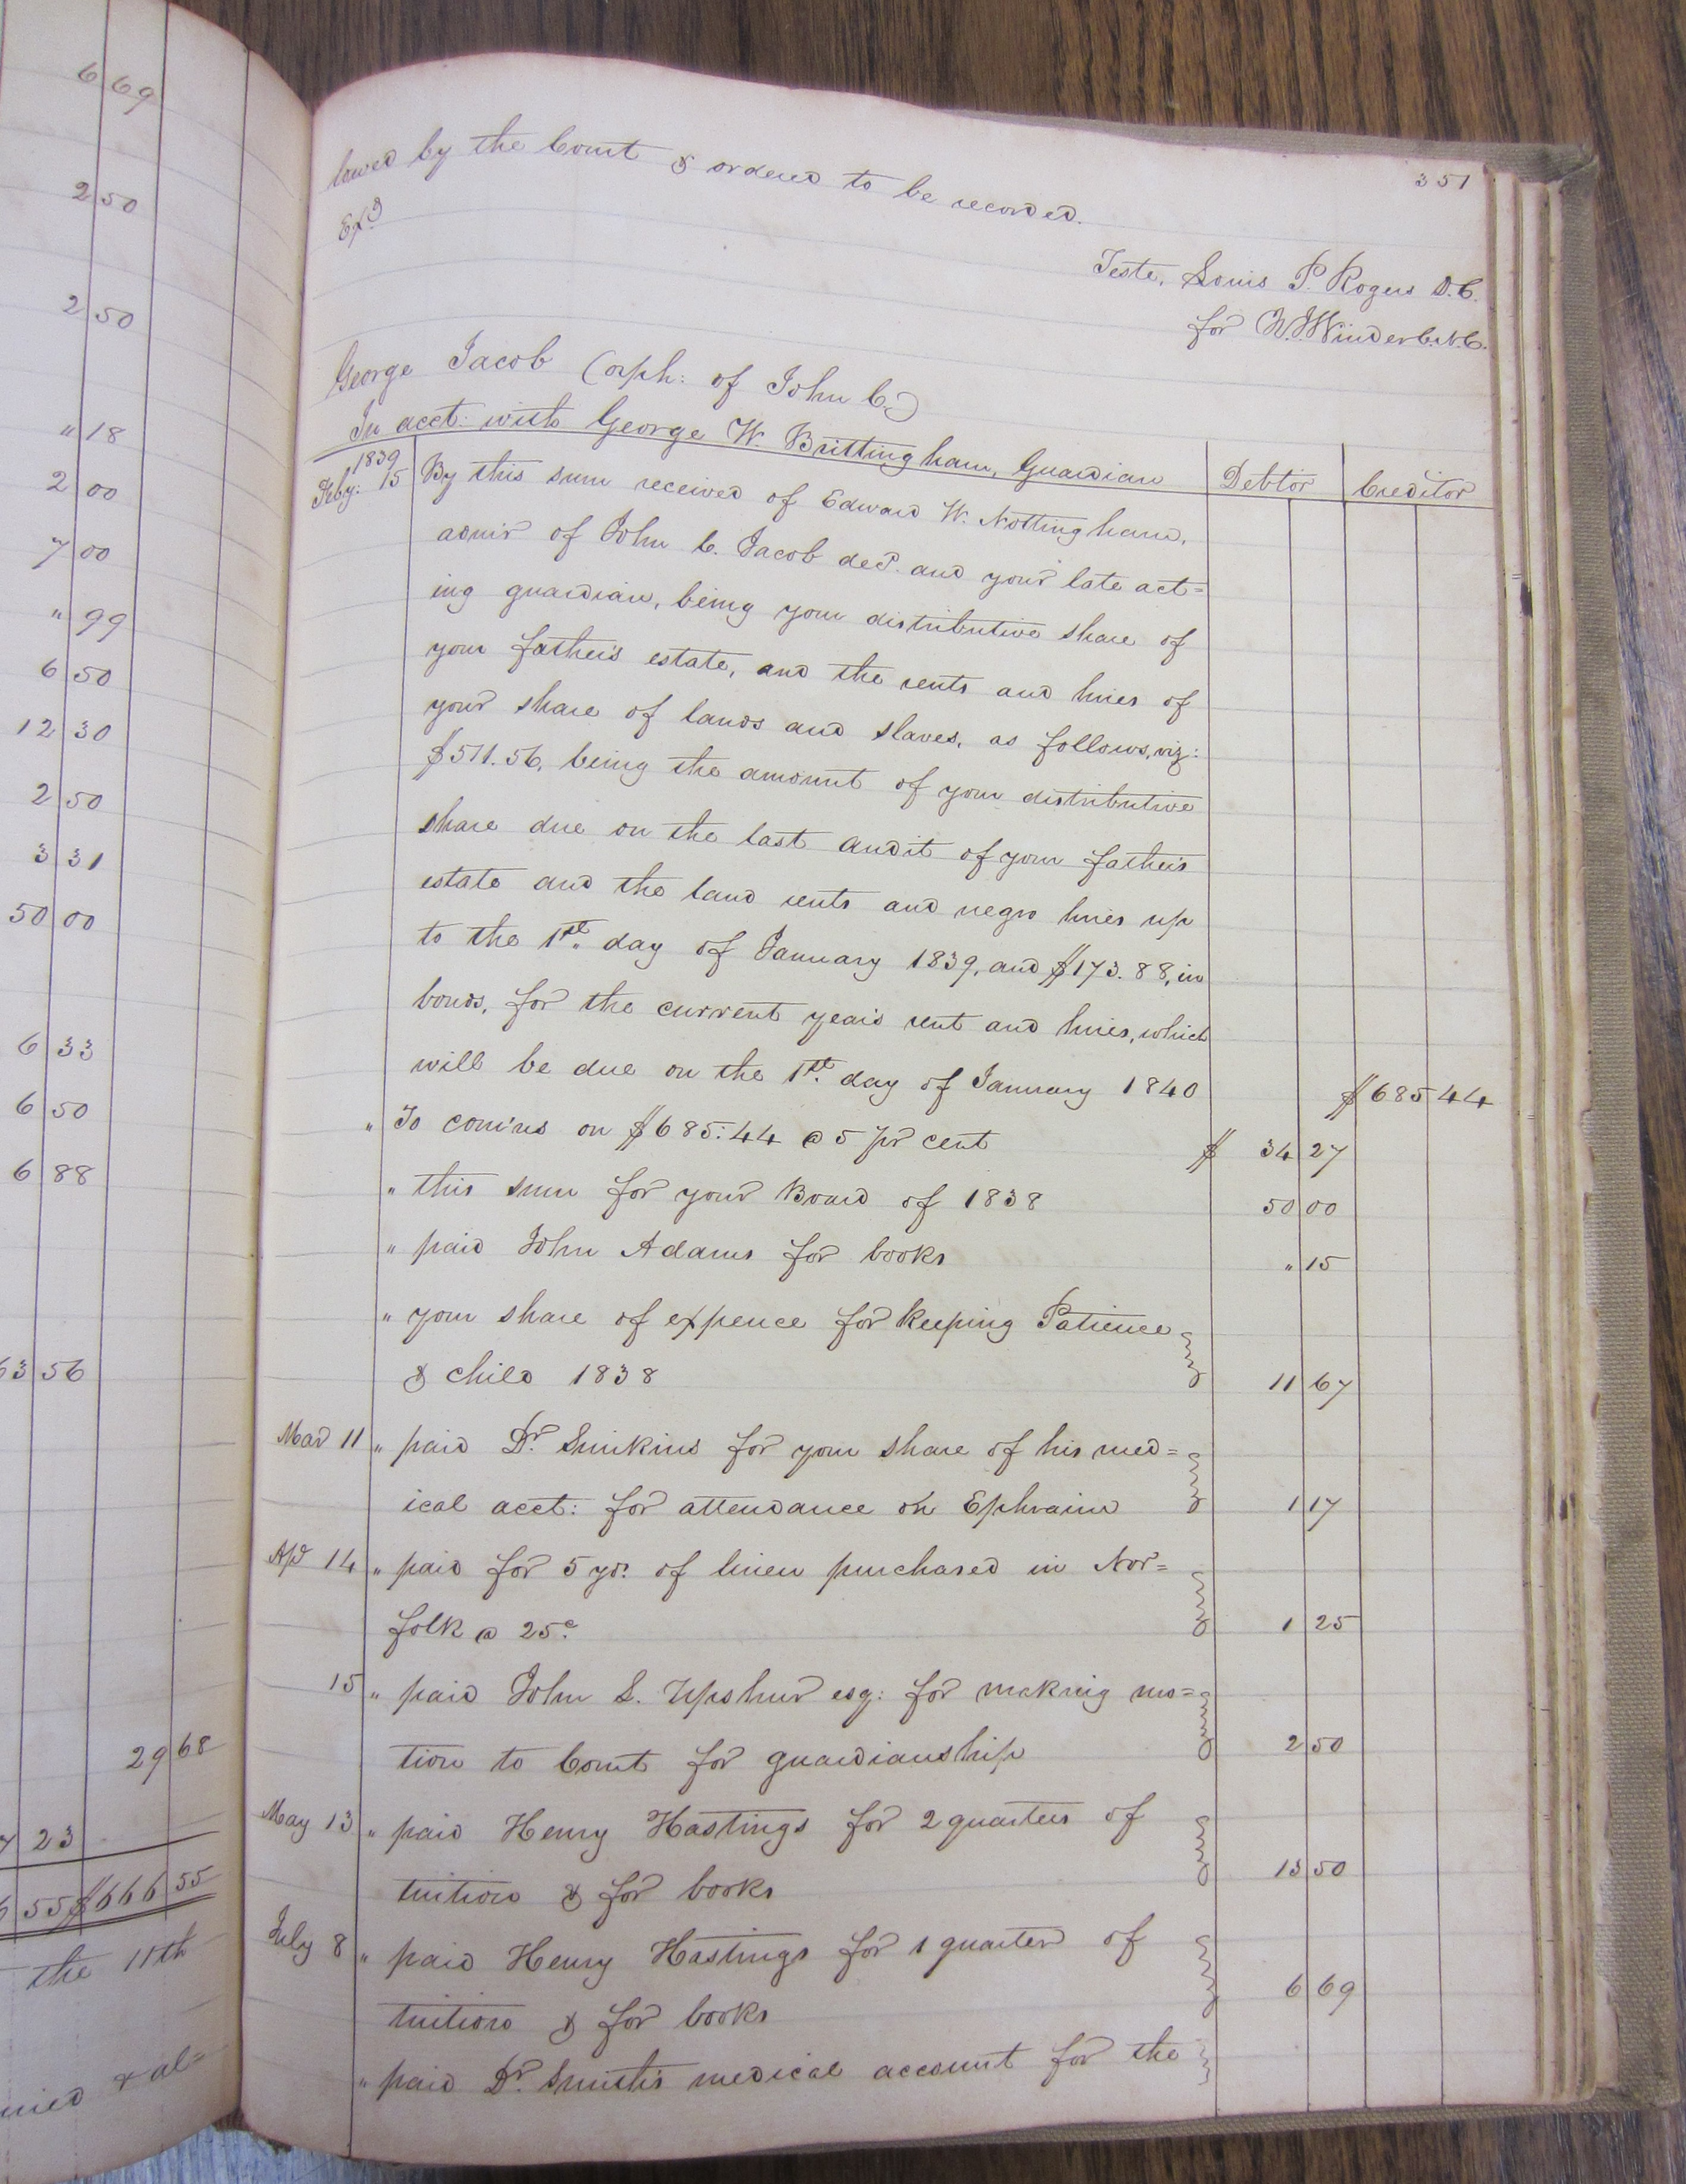 6 69
2 50
2 50
" 18
2 00
7 00
" 99
6 50
12 30
2 50
3 31
50 00
6 33
6 50
6 88
63 56
29 68
23
55 $666 55
the 11th
& al=
351
lowed by the Court & ordered to be recorded.
Exd
Teste, Louis P. Rogers D.C.
for N.J. Winder C.N.C.
George Jacob (orph: of John C.)
In acct: with George W. Brittingham, Guardian
Debtor Creditor
1839
Feby: 15 By this sum received of Edward W. Nottingham,
admr of John C. Jacob decd. and your late act=
ing guardian, being your distributive share of
your father's estate, and the rents and hires of
your share of lands and slaves, as follows, viz:
$511.56, being the amount of your distributive
share due on the last audit of your father's
estate and the land rents and negro hires up
to the 1st. day of January 1839, and $173.88, in
bonds, for the current year's rent and hires, which
will be due on the 1st. day of January 1840 $685 44
" To comins on $685:44 @ 5 pr cent $ 34 27
" this sum for your Board of 1838 50 00
" paid John Adams for books " 15
" your share of expence for keeping Patience
& child 1838 11 67
Mar 11 " paid Dr. Smikins for your share of his med=
ical acct: for attendance on Ephraim 1 17
Apl 14 " paid for 5 yds. of linen purchased in Nor=
folk @ 25c. 1 25
15 " paid John S. Upshur esq: for making mo=
tion to Court for guardianship 2 50
May 13 " paid Henry Hastings for 2 quarters of
tuition & for books 13 50
July 8 " paid Henry Hastings for 1 quarter of
tuition & for books 6 69
" paid Dr. Smith's medical account for the